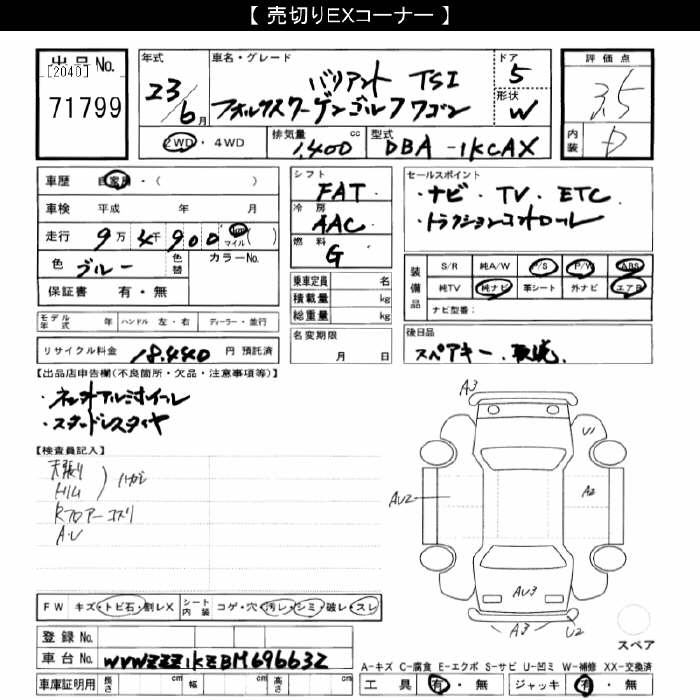 【 売切りEXコーナー 】
出品No.
[2040]
71799
年式
23/6月
車名・グレード
バリアント TSI
フォルクスワーゲンゴルフワゴン
ドア
5
形状
W
評価点
3.5
内装
D
2WD・4WD
排気量
1,400 cc
型式
DBA-1KCAX
車歴 自家用・( )
車検 平成 年 月
走行 9万4千900 km マイル ( )
色 ブルー 色替 カラーNo.
保証書 有・無
シフト
FAT
冷房
AAC
燃料
G
セールスポイント
・ナビ・TV・ETC
・トラクションコントロール
装備品
S/R 純A/W P/S P/W ABS
純TV 純ナビ 革シート 外ナビ エアB
ナビ型番:
乗車定員 名
積載量 kg
総重量 kg
モデル年式 年 ハンドル 左・右 ディーラー・並行
名変期限
月 日
リサイクル料金 18,440 円 預託済
後日品
スペアキー・取説.
【出品店申告欄(不良箇所・欠品・注意事項等)】
・ネンオアルミホイール
・スタッドレスタイヤ
【検査員記入】
天張り
トリム
ハガレ
Rフロアーコスリ
A.U
A3
U1
AU2
A2
AU3
A3
U2
スペア
FW キズ・トビ石・割レX シート内装 コゲ・穴・汚レ・シミ・破レ・スレ
登録No.
車台No. WVWZZZ1KZBM696632
A-キズ C-腐食 E-エクボ S-サビ U-凹ミ W-補修 XX-交換済
車庫証明用 長さ cm 幅 cm 高さ cm
工具 有・無 ジャッキ 有・無